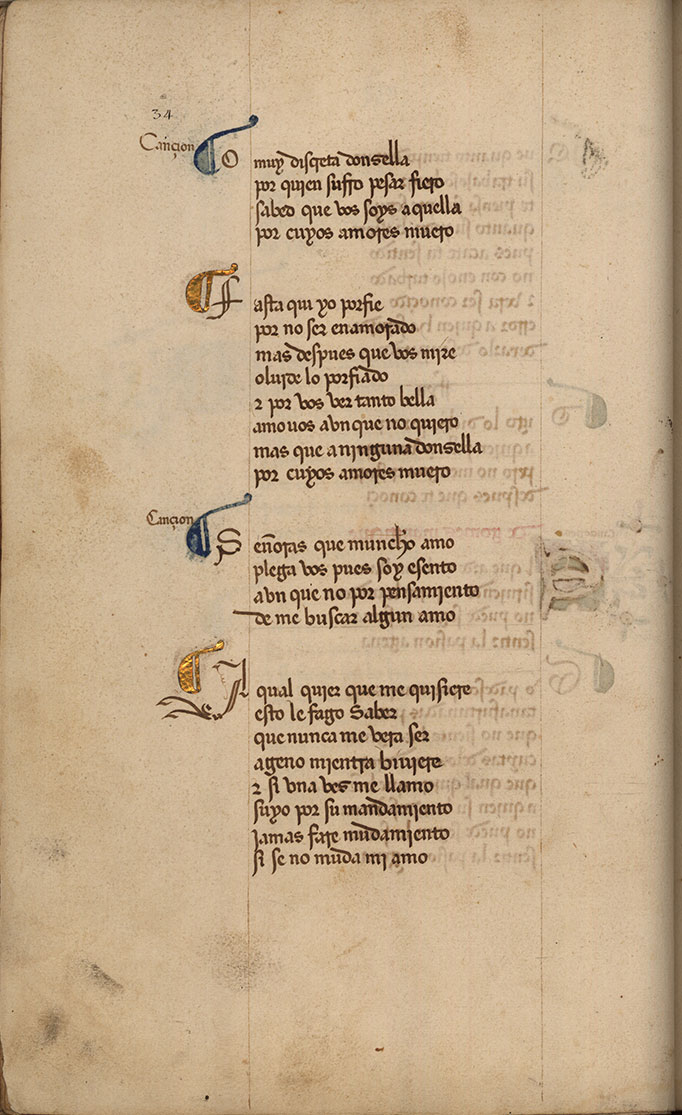 34
Cançion
O muy discreta donsella
por quien sufro pesar fiero
sabed que vos soys aquella
por cuyos amores muero
Fasta qui yo porfie
por no ser enamorado
mas despues que vos mire
oluide lo porfiado
τ por vos ver tanto bella
amo uos avn que no quiero
mas que a ninguna donsella
por cuyos amores muero
Cançion
Señoras que muncho amo
plega vos pues soy esento
avn que no por pensamiento
de me buscar algun amo
A qual quier que me quisiere
esto le fago saber
que nunca me vera ser
ageno mientra biuiere
τ si vna ves me llamo
suyo por su mandamiento
jamas fare mudamiento
si se no muda mi amo